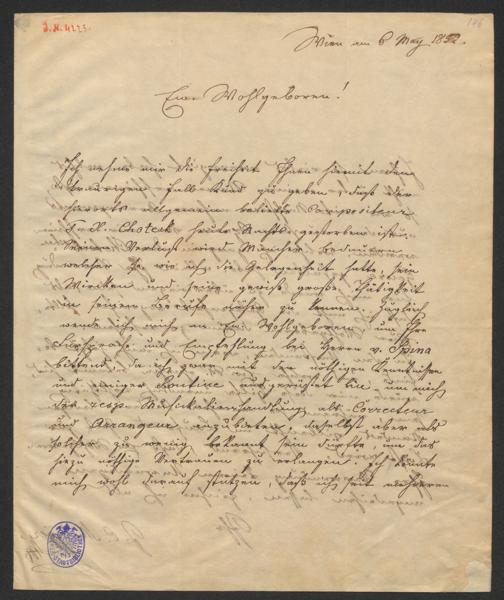 I.N. 4223.
126
Wien am 6 May 1852.
Euer Wohlgeboren!
Ich nehme mir die Freiheit Ihnen hiemit den
traurigen Fall kund zu geben, daß der
allgemein beliebte Compositeur
F. X. Chotek heute Nachts gestorben ist.
Seinen Verlust wird Mancher bedauern
welcher so wie ich die Gelegenheit hatte, sein
Wirken und seine gewiß große Thätigkeit
in seinem Berufe näher zu kennen.
wende ich mich an Eu Wohlgeboren um Ihre
Fürsprache und Empfehlung bei Herrn v. Spina
bittend, da ich zwar mit den nöthigen Kenntnissen
und einiger Routine ausgerüstet bin um mich
der resp. Musikalienhandlung als Correcteur
und Arrangeur anzubieten, daselbst aber als
solcher zu wenig bekannt sein dürfte, um das
hiezu nöthige Vertrauen zu erlangen. Ich könnte
mich wohl darauf stützen, daß ich seit mehreren